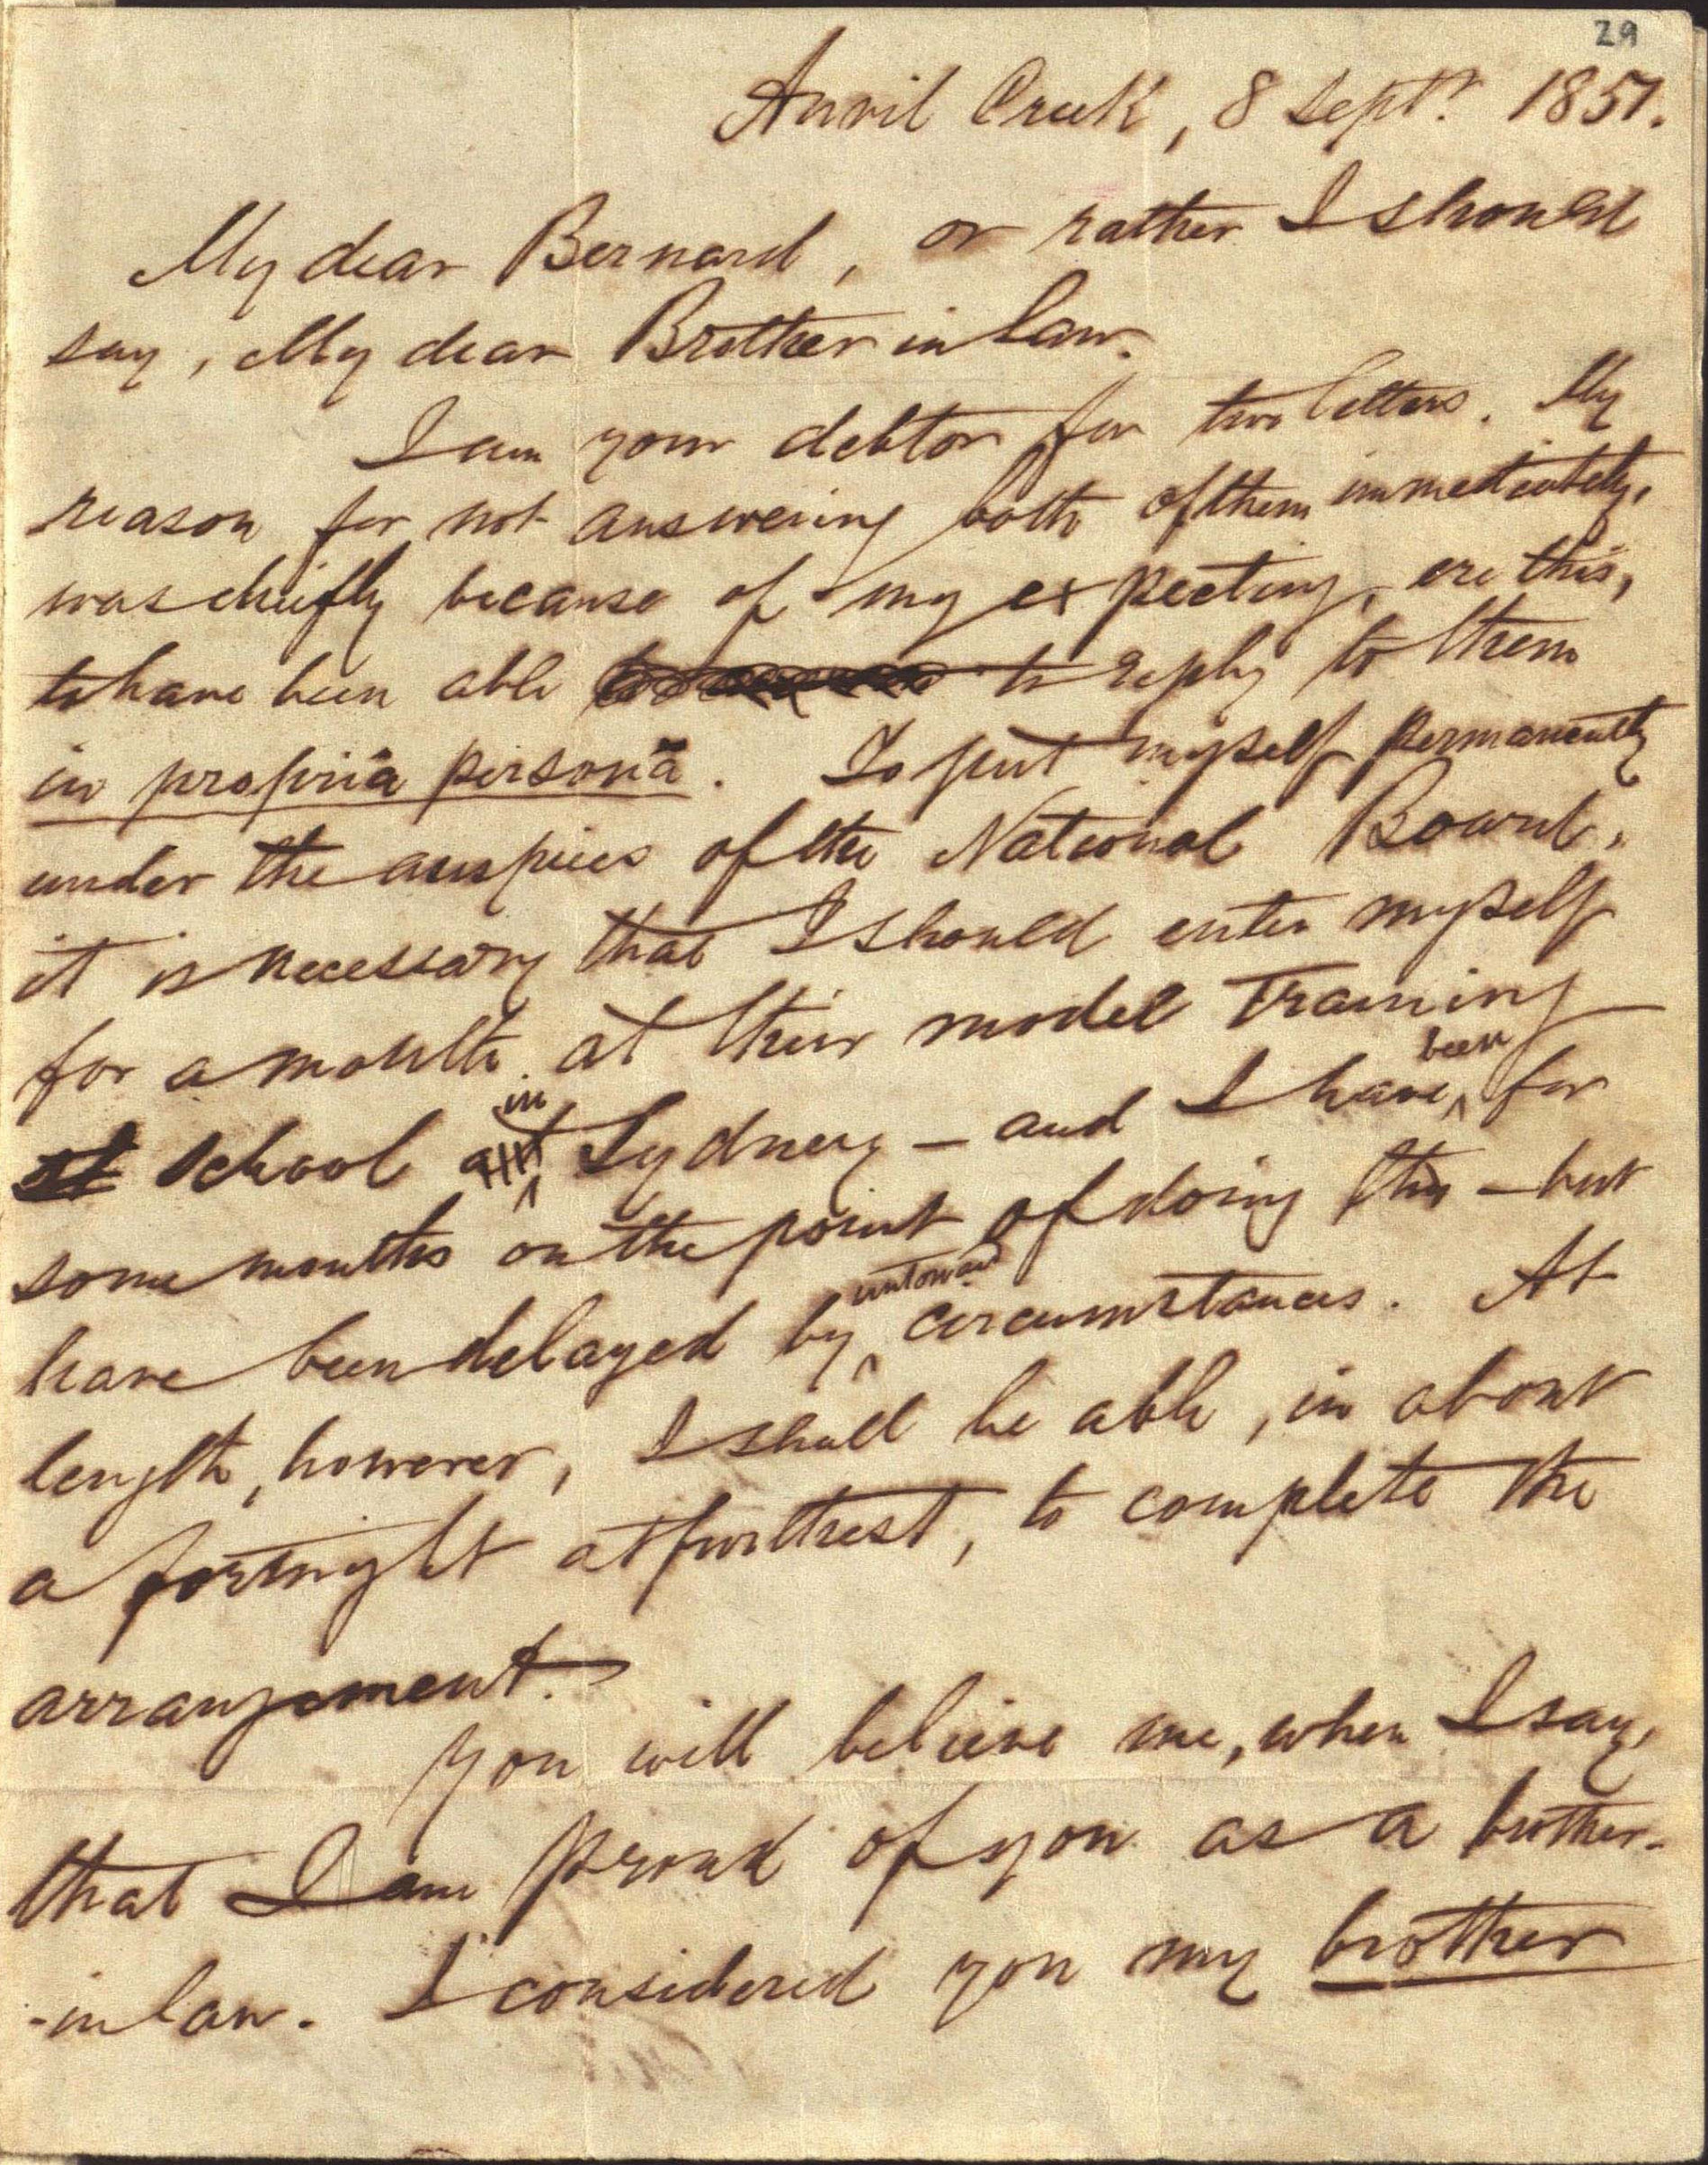 29
Anvil Creek, 8 Septr. 1851.
My dear Bernard, or rather I should
say, My dear Brother in law.
I am your debtor for two letters. My
reason for not answering both of them immediately,
was chiefly because of my expecting, ere this,
to have been able to reply to them
in propriâ personâ. To put myself permanently
under the auspices of the National Board,
it is necessary that I should enter myself
for a month at their model Training
been
st school at Sydney – and I have ^ for
in
some months on the point of doing this – but
untoward
have been delayed by ^ circumstances. At
length, however, I shall be able, in about
a fortnight at furthest, to complete the
arrangement.
You will believe me, when I say,
that I am proud of you as a brother-
-in law. I considered you my brother